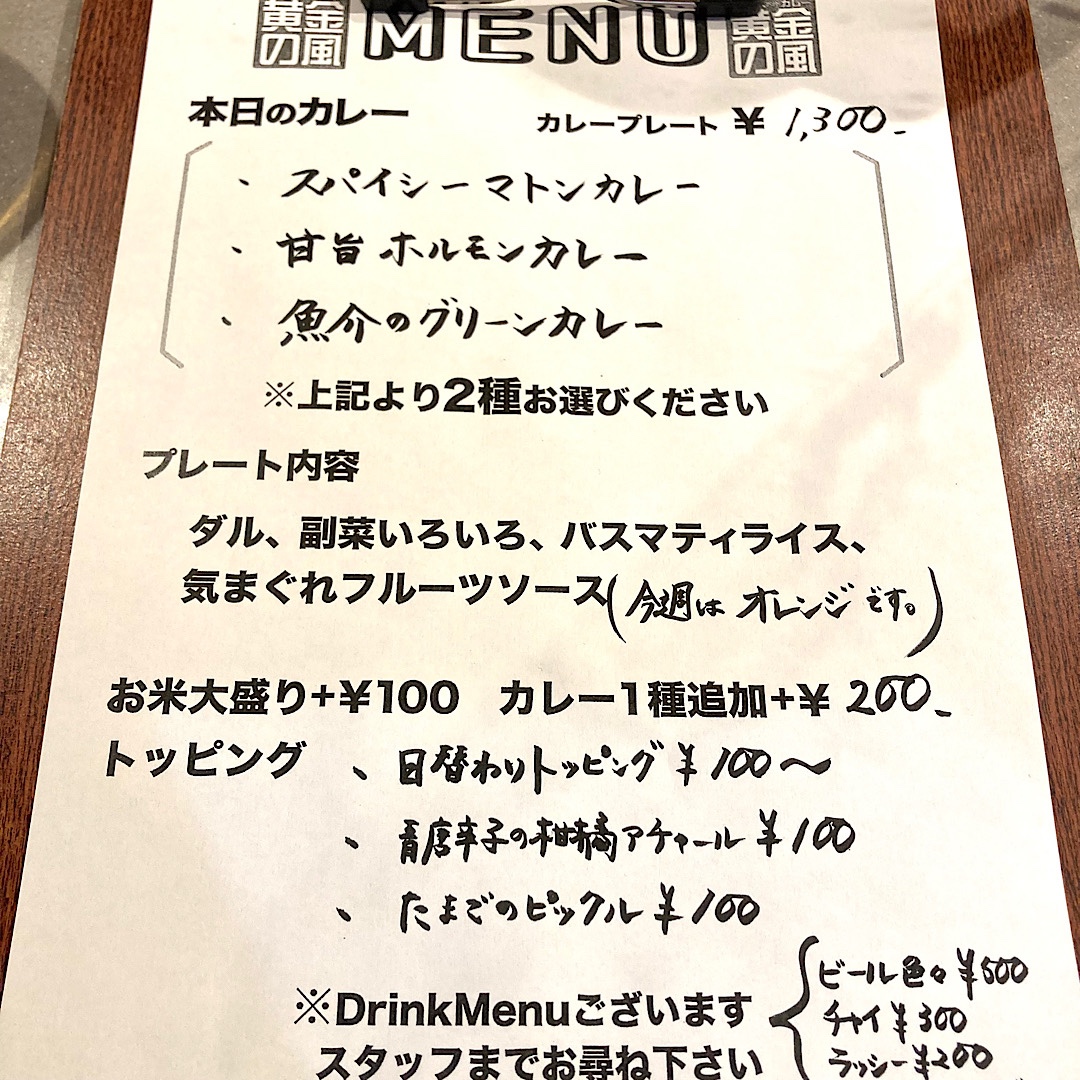 黄金の風 MENU カレー 黄金の風
本日のカレー カレープレート ¥ 1,300-
・ スパイシーマトンカレー
・ 甘旨ホルモンカレー
・ 魚介のグリーンカレー
※上記より2種お選びください
プレート内容
ダル、副菜いろいろ、バスマティライス、
気まぐれフルーツソース(今週は オレンジです。)
お米大盛り+¥100 カレー1種追加+¥ 200-
トッピング 、日替わりトッピング ¥100〜
、青唐辛子の柑橘アチャール ¥100
、たまごのピックル ¥100
ビール色々 ¥500
※DrinkMenuございます チャイ ¥300
スタッフまでお尋ね下さい ラッシー ¥200